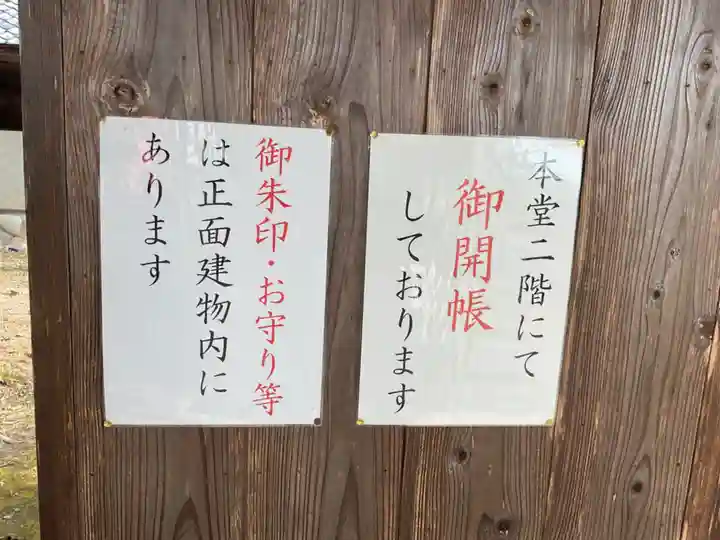 本堂二階にて
御開帳
しております
御朱印・お守り等
は正面建物内に
あります